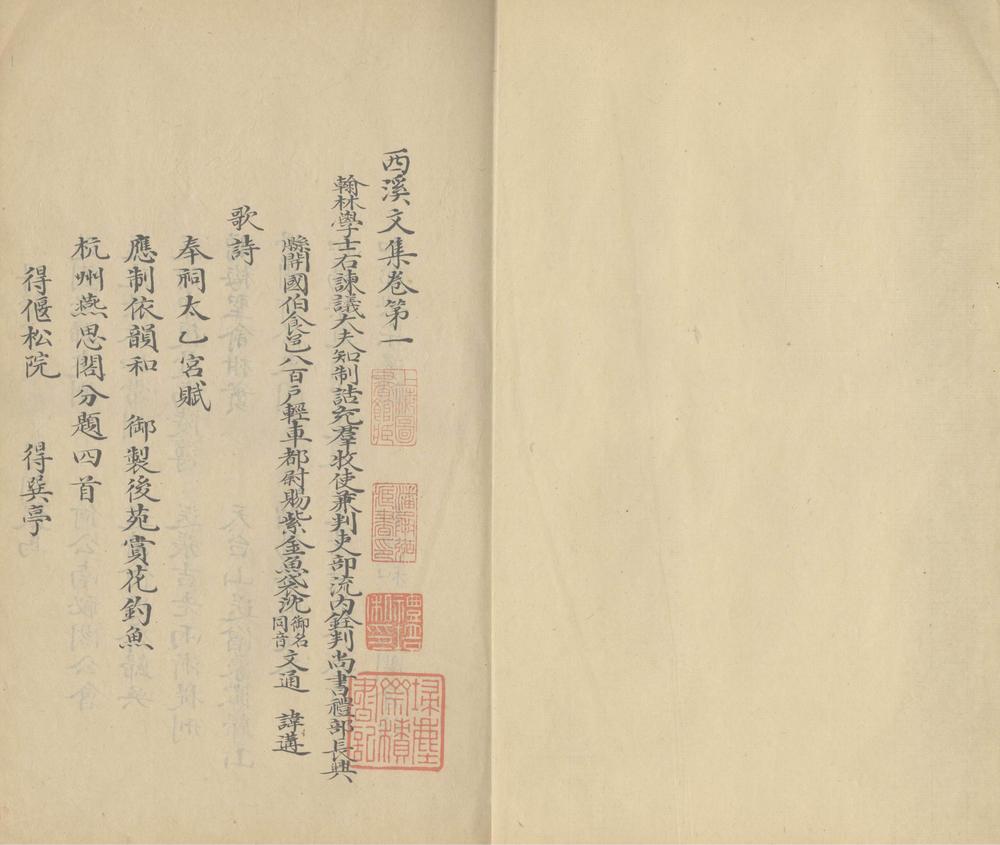 西溪文集卷第一
翰林學士右諫議大夫知制誥充羣牧使兼判吏部流內銓判尚書禮部長興
縣開國伯食邑八百戶輕車都尉賜紫金魚袋沈御名同音文通 諱遘
歌詩
奉祠太乙宮賦
應制依韻和 御製後苑賞花釣魚
杭州燕思閣分題四首
得偃松院 得巽亭
上海圖書館藏
埽塵齋積書記
禮培私印